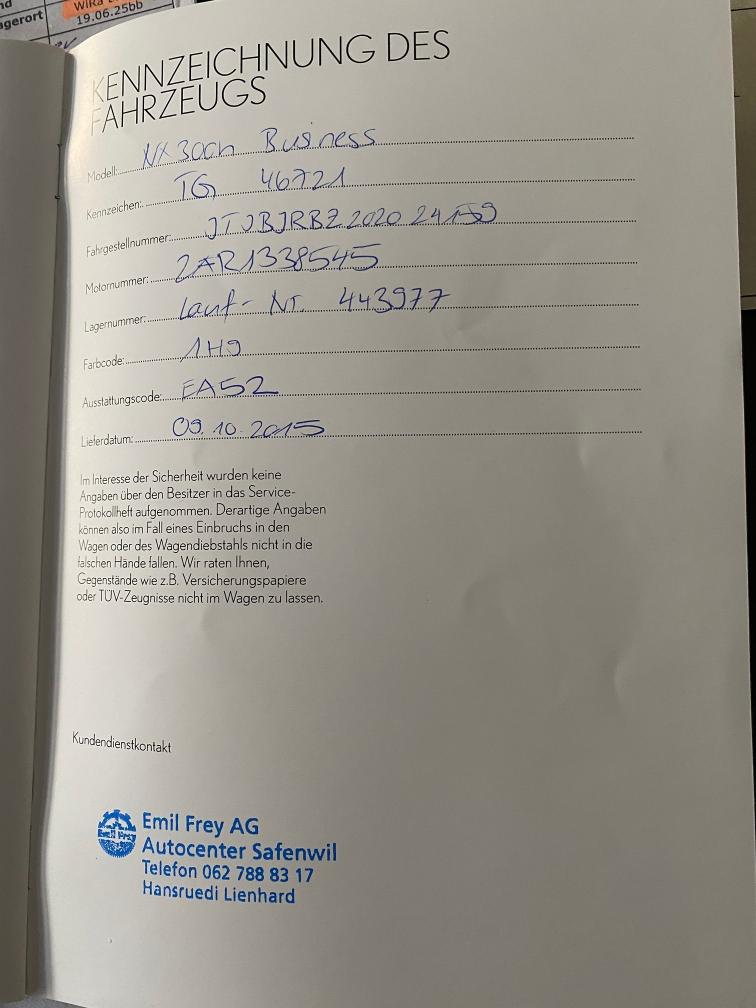 agerort
WiRa
19.06.25bb
KENNZEICHNUNG DES
FAHRZEUGS
Modell: NX 300h Business
Kennzeichen: TG 46721
Fahrgestellnummer: JTJBJRBZ202024159
Motornummer: 2AR1338545
Lagernummer: Lauf-Nr. 443977
Farbcode: 1H9
Ausstattungscode: EA52
Lieferdatum: 09.10.2015
Im Interesse der Sicherheit wurden keine
Angaben über den Besitzer in das Service-
Protokollheft aufgenommen. Derartige Angaben
können also im Fall eines Einbruchs in den
Wagen oder des Wagendiebstahls nicht in die
falschen Hände fallen. Wir raten Ihnen,
Gegenstände wie z.B. Versicherungspapiere
oder TÜV-Zeugnisse nicht im Wagen zu lassen.
Kundendienstkontakt
Emil Frey
Emil Frey AG
Autocenter Safenwil
Telefon 062 788 83 17
Hansruedi Lienhard